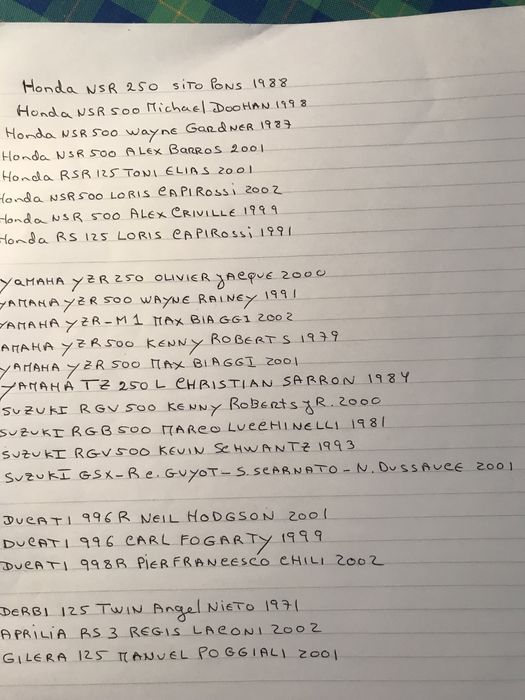 Honda NSR 250 SITO PONS 1988
Honda NSR 500 Michael DOOHAN 1998
Honda NSR 500 WAYNE GARDNER 1987
Honda NSR 500 ALEX BARROS 2001
Honda RSR 125 TONI ELIAS 2001
Honda NSR 500 LORIS CAPIROSSI 2002
Honda NSR 500 ALEX CRIVILLE 1999
Honda RS 125 LORIS CAPIROSSI 1991
YAMAHA YZR 250 OLIVIER JACQUE 2000
YAMAHA YZR 500 WAYNE RAINEY 1991
YAMAHA YZR-M1 MAX BIAGGI 2002
YAMAHA YZR 500 KENNY ROBERTS 1979
YAMAHA YZR 500 MAX BIAGGI 2001
YAMAHA TZ 250 L CHRISTIAN SARRON 1984
SUZUKI RGV 500 KENNY Roberts JR. 2000
SUZUKI RGB 500 MARCO LUCCHINELLI 1981
SUZUKI RGV 500 KEVIN SCHWANTZ 1993
SUZUKI GSX-R C. GUYOT - S. SCARNATO - N. DUSSAUCE 2001
DUCATI 996R NEIL HODGSON 2001
DUCATI 996 CARL FOGARTY 1999
DUCATI 998R PIERFRANCESCO CHILI 2002
DERBI 125 TWIN Angel NIETO 1971
APRILIA RS 3 REGIS LACONI 2002
GILERA 125 MANUEL POGGIALI 2001